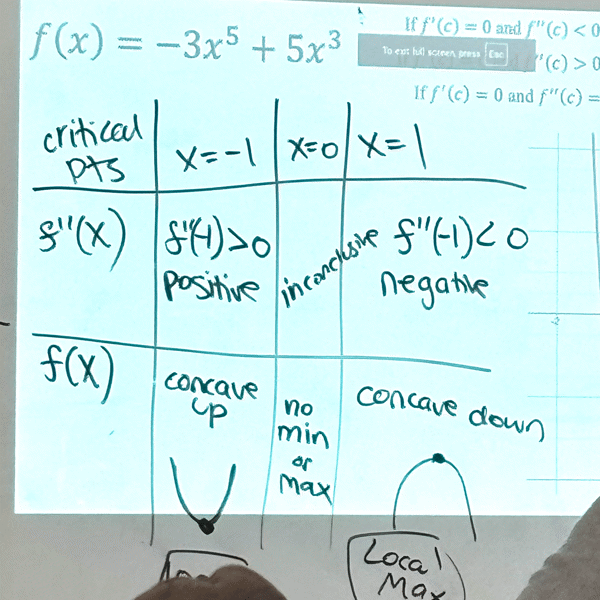 f(x) = −3x⁵ + 5x³
If f'(c) = 0 and f''(c) < 0
To exit full screen, press Esc
f''(c) > 0
If f'(c) = 0 and f''(c) =
critical pts x=-1 x=0 x=1
f''(x) f''(-1)>0 inconclusive f''(-1)<0
positive negative
f(x) concave up no min or max concave down
Local Max